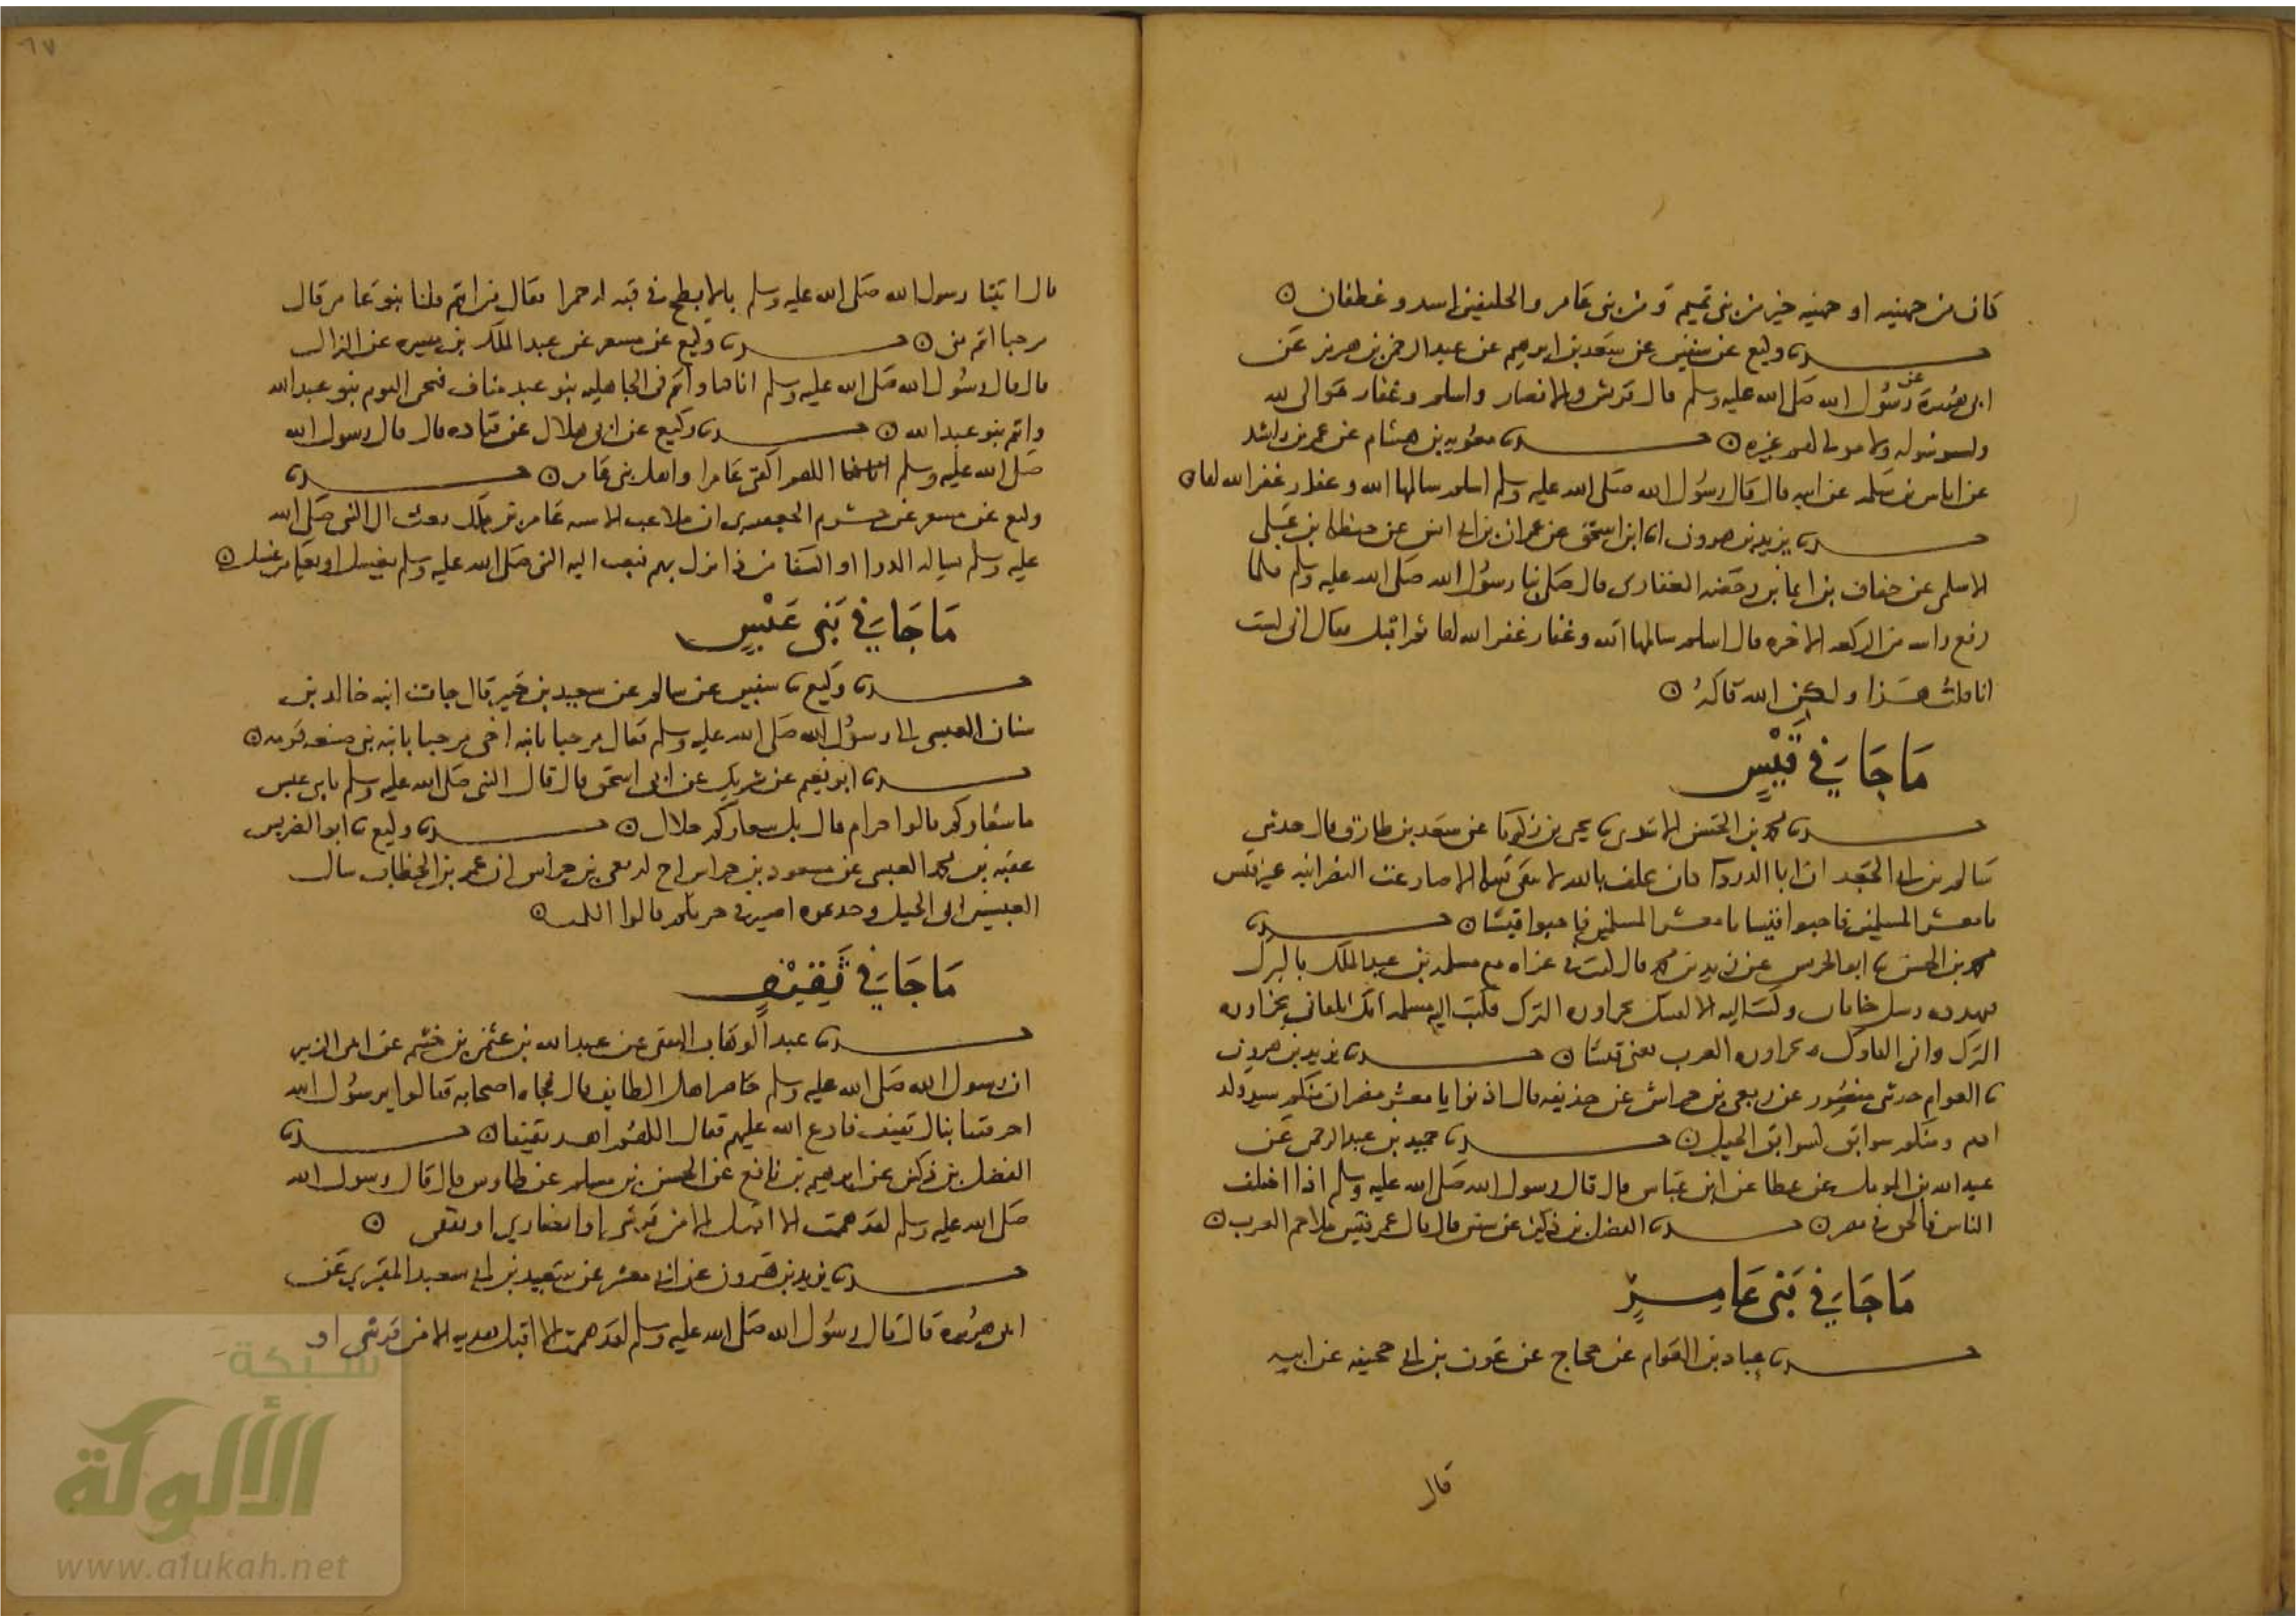 كان من جهينه او جهينه خير من بني تميم و من بني عامر والحليفين اسد و غطفان ه
حدثنا وكيع عن سفين عن سعد بن ابرهيم عن عبد الرحمن بن هرمز عن
ابي هريرة عن رسول الله صلى الله عليه وسلم قال قريش والانصار واسلم وغفار موالي لله
ولرسوله ولا مولى لهم غيره ه حدثنا معويه بن هشام عن عمر بن راشد
عن اياس بن سلمه عن ابيه قال قال رسول الله صلى الله عليه وسلم اسلم سالمها الله وغفار غفر الله لها ه
حدثنا يزيد بن هرون انا ابن اسحق عن عمران بن ابي انس عن حنظله بن علي
الاسلمي عن خفاف بن ايما بن رحضه الغفاري قال صلى بنا رسول الله صلى الله عليه وسلم فلما
رفع راسه من الركعه الاخره قال اسلم سالمها الله وغفار غفر الله لها ثم اقبل فقال اني لست
انا قلت هذا ولكن الله قاله ه
ما جا في قيس
حدثنا محمد بن الحسن الاسدي نا يحيى بن زكريا عن سعد بن طارق قال حدثني
سالم بن ابي الجعد ان ابا الدردا كان يحلف بالله لا تبقى قبيله الا صارعت النصرانيه غير قيس
يا معشر المسلمين فاحبوا قيسا يا معشر المسلمين فاحبوا قيسا ه حدثنا
محمد بن الحسن نا ابو الحرس عن زيد بن محمد قال كنت في غزاه مع مسلمه بن عبد الملك بالترك
الترك واني العرب يعني قيسا ه حدثنا يزيد بن هرون
نا العوام حدثني منصور عن ربعي بن حراش عن حذيفه قال ادنوا يا معشر مضر ان منكم سيد ولد
ادم ومنكم سوابق كسوابق الخيل ه حدثنا حميد بن عبد الرحمن عن
عبد الله بن المومل عن عطا عن ابن عباس قال قال رسول الله صلى الله عليه وسلم اذا اختلف
الناس فالحق في مضر ه حدثنا الفضل بن دكين عن قال قال عمر قيس ملاحم العرب ه
ما جا في بني عامر
حدثنا عباد بن العوام عن حجاج عن عون بن ابي جحيفه عن ابيه
قال
٦٧
قال اتينا رسول الله صلى الله عليه وسلم بالابطح في قبه له حمرا فقال من انتم قلنا بنو عامر قال
مرحبا انتم مني ه حدثنا وكيع عن مسعر عن عبد الملك بن ميسره عن النزال
قال قال رسول الله صلى الله عليه وسلم انا كنا وانتم في الجاهليه بنو عبد مناف فنحن اليوم بنو عبد الله
وانتم بنو عبد الله ه حدثنا وكيع عن ابي هلال عن قتاده قال قال رسول الله
صلى الله عليه وسلم اللهم اكفني عامرا واهد بني عامر ه حدثنا
وكيع عن مسعر عن خشرم الجعفري ان ملاعب الاسنه عامر بن ملك بعث الى النبي صلى الله
عليه وسلم يساله الدوا او الشفا من دا نزل بهم فبعث اليه النبي صلى الله عليه وسلم بعسل او بعكه من عسل ه
ما جا في بني عبس
حدثنا وكيع نا سفين عن سالم عن سعيد بن جبير قال جات ابنه خالد بن
سنان العبسي الى رسول الله صلى الله عليه وسلم فقال مرحبا بابنه اخي مرحبا بابنه نبي ضيعه قومه ه
حدثنا ابو نعيم عن شريك عن ابي اسحق قال قال النبي صلى الله عليه وسلم يا بني عبس
ما شعاركم قالوا حرام قال بل شعاركم حلال ه حدثنا وكيع نا ابو الضريس
عقبه بن محمد العبسي عن مسعود بن حراش اخ لربعي بن حراش ان عمر بن الخطاب سال
العبسيين اي الخيل وجدتموه اصبر في حربكم قالوا الكميت ه
ما جا في ثقيف
حدثنا عبد الوهاب الثقفي عن عبد الله بن عثمن بن خثيم عن ابي الزبير
ان رسول الله صلى الله عليه وسلم حاصر اهل الطايف قال فجاه اصحابه فقالوا يرسول الله
احرقتنا نبال ثقيف فادع الله عليهم فقال اللهم اهد ثقيفا ه حدثنا
الفضل بن دكين عن ابرهيم بن نافع عن الحسن بن مسلم عن طاوس قال قال رسول الله
صلى الله عليه وسلم لقد هممت الا اتهب الا من قرشي او انصاري او ثقفي ه
حدثنا يزيد بن هرون عن ابي معشر عن سعيد بن ابي سعيد المقبري عن
ابي هريرة قال قال رسول الله صلى الله عليه وسلم لقد هممت الا اقبل هديه الا من قرشي او
شبكة
الألوكة
www.alukah.net